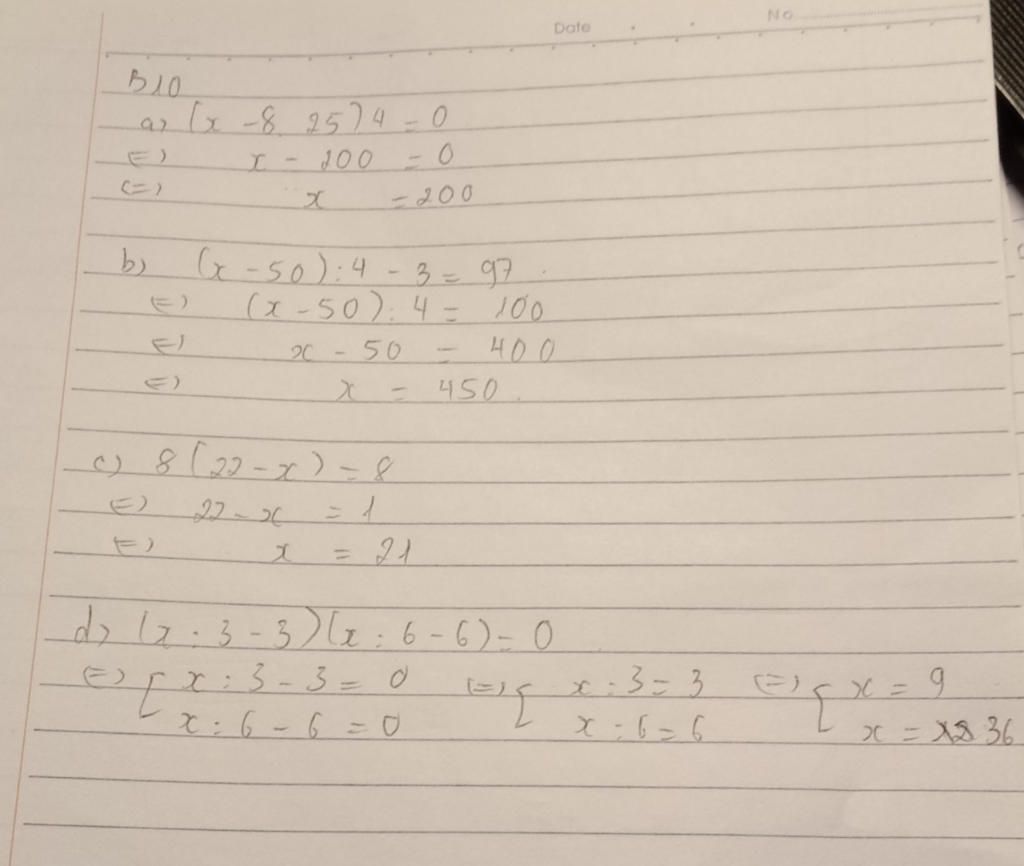 Date . . No
B10
a) (x - 8 . 25) 4 = 0
(=) x - 200 = 0
(=) x = 200
b) (x - 50) : 4 - 3 = 97 .
(=) (x - 50) : 4 = 100
(=) x - 50 = 400
(=) x = 450 .
c) 8 (22 - x) = 8
(=) 22 - x = 1
(=) x = 21
d) (x : 3 - 3) (x : 6 - 6) = 0
(=) [ x : 3 - 3 = 0 (=) [ x : 3 = 3 (=) [ x = 9
x : 6 - 6 = 0 x : 6 = 6 x = 36